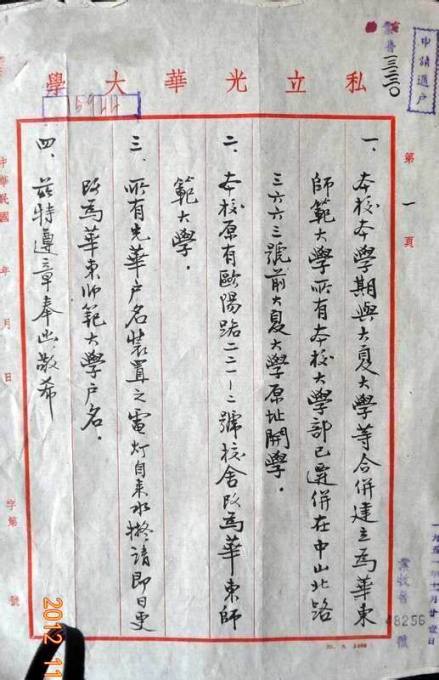 申請過户
私立光華大學
第一頁
一、本校本學期與大夏大學等合併建立為華東
師範大學所有本校大學部已遷併在中山北路
三六六三號前大夏大學原址開學.
二、本校原有歐陽路二二一—二號校舍改為華東師
範大學.
三、所有光華户名裝置之電灯自來水擬請即日更
改為華東師範大學户名.
四、茲特遵章奉函敬希
中華民國 年 月 日 字第 號
業收普 48256 號
2012 11